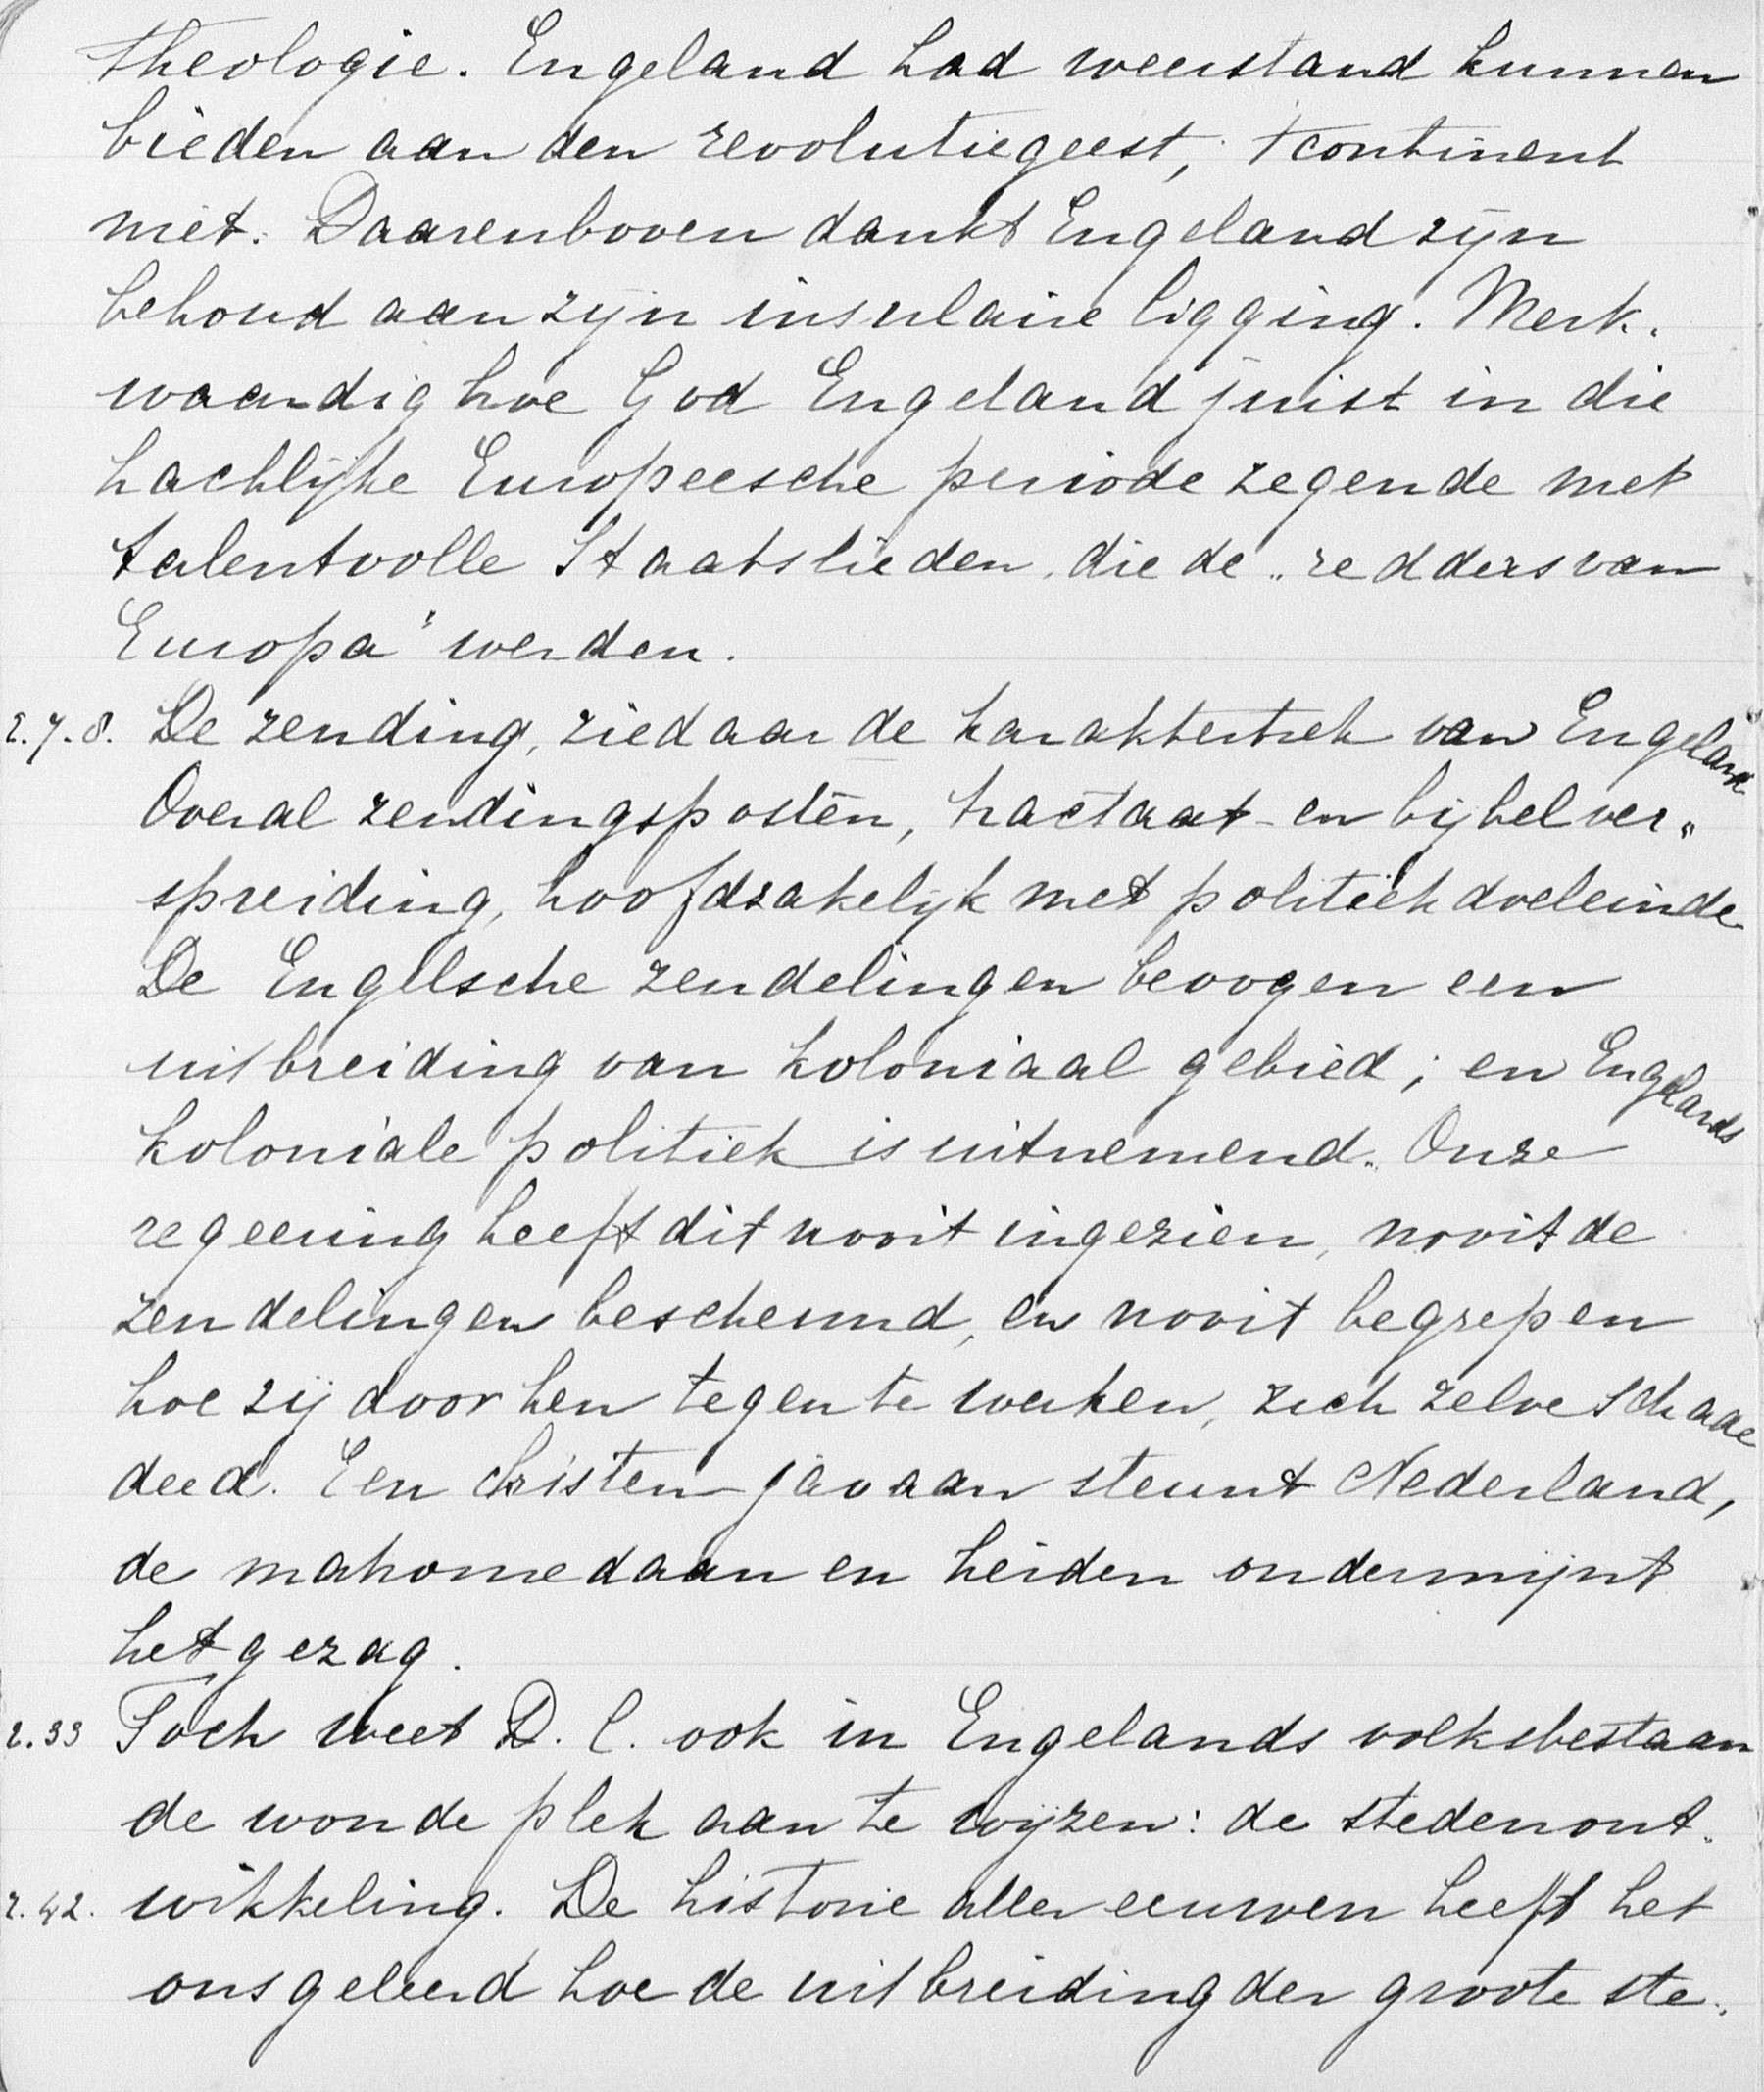 theologie. Engeland had weerstand kunnen
bieden aan den revolutiegeest, 't continent
niet. Daarenboven dankt Engeland zijn
behoud aan zijn insulaire ligging. Merk-
waardig hoe God Engeland juist in die
hachlijke Europeesche periode zegende met
talentvolle Staatslieden, die de „redders van
Europa" werden.
2.7.8. De zending, ziedaar de karaktertrek van Engeland
Overal zendingsposten, tractaat- en bijbelver-
spreiding, hoofdzakelijk met politiek doeleinde
De Engelsche zendelingen beoogen een
uitbreiding van koloniaal gebied; en Engelands
koloniale politiek is uitnemend. Onze
regeering heeft dit nooit ingezien, nooit de
zendelingen beschermd, en nooit begrepen
hoe zij door hen tegen te werken, zich zelve schade
deed. Een christen-javaan steunt Nederland,
de mahomedaan en heiden ondermijnt
het gezag.
2.33 Toch weet D. C. ook in Engelands volksbestaan
de wonde plek aan te wijzen: de stedenont-
2.42. wikkeling. De historie aller eeuwen heeft het
ons geleerd hoe de uitbreiding der groote ste-